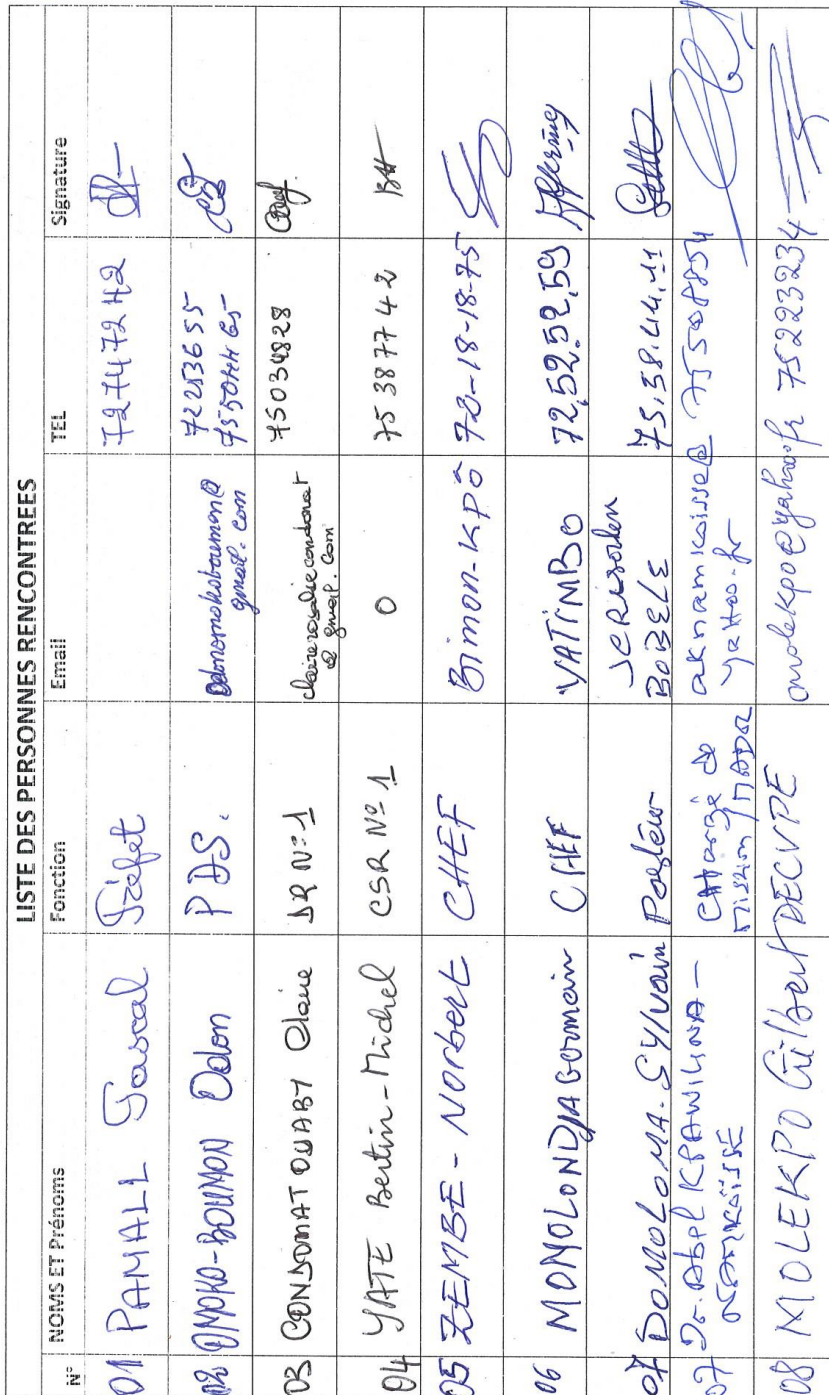 LISTE DES PERSONNES RENCONTREES
N° NOMS ET Prénoms Fonction Email TEL Signature
01 PAMALL Pascal Préfet 72747242
02 OMOKO-BOUMON Odon PDS. 72253655
odonomokoboumon@gmail.com 75504465
03 CONDOMAT OUABY Claire DR N°1 claire rosalie condomat @ gmail. com 75034828
04 YATE Bertin-Michel CSR N° 1 0 75387742
05 ZEMBE - Norbert CHEF Bimon-KPÔ 72-18-18-75
06 MONOLONDJA Germain CHEF YATIMBO 72,52,52,59
07 DOMOLOMA-SYlvain Pasteur
BOBELE 75,58,44,11
07 Dr. Abel KPAWILINA - Chargé de aknamkaisse@ 75508854
NAMKOÏSSE Mission/MADR yahoo.fr
08 MOLEKPO Gilbert molekpo@yahoo.fr 75223234